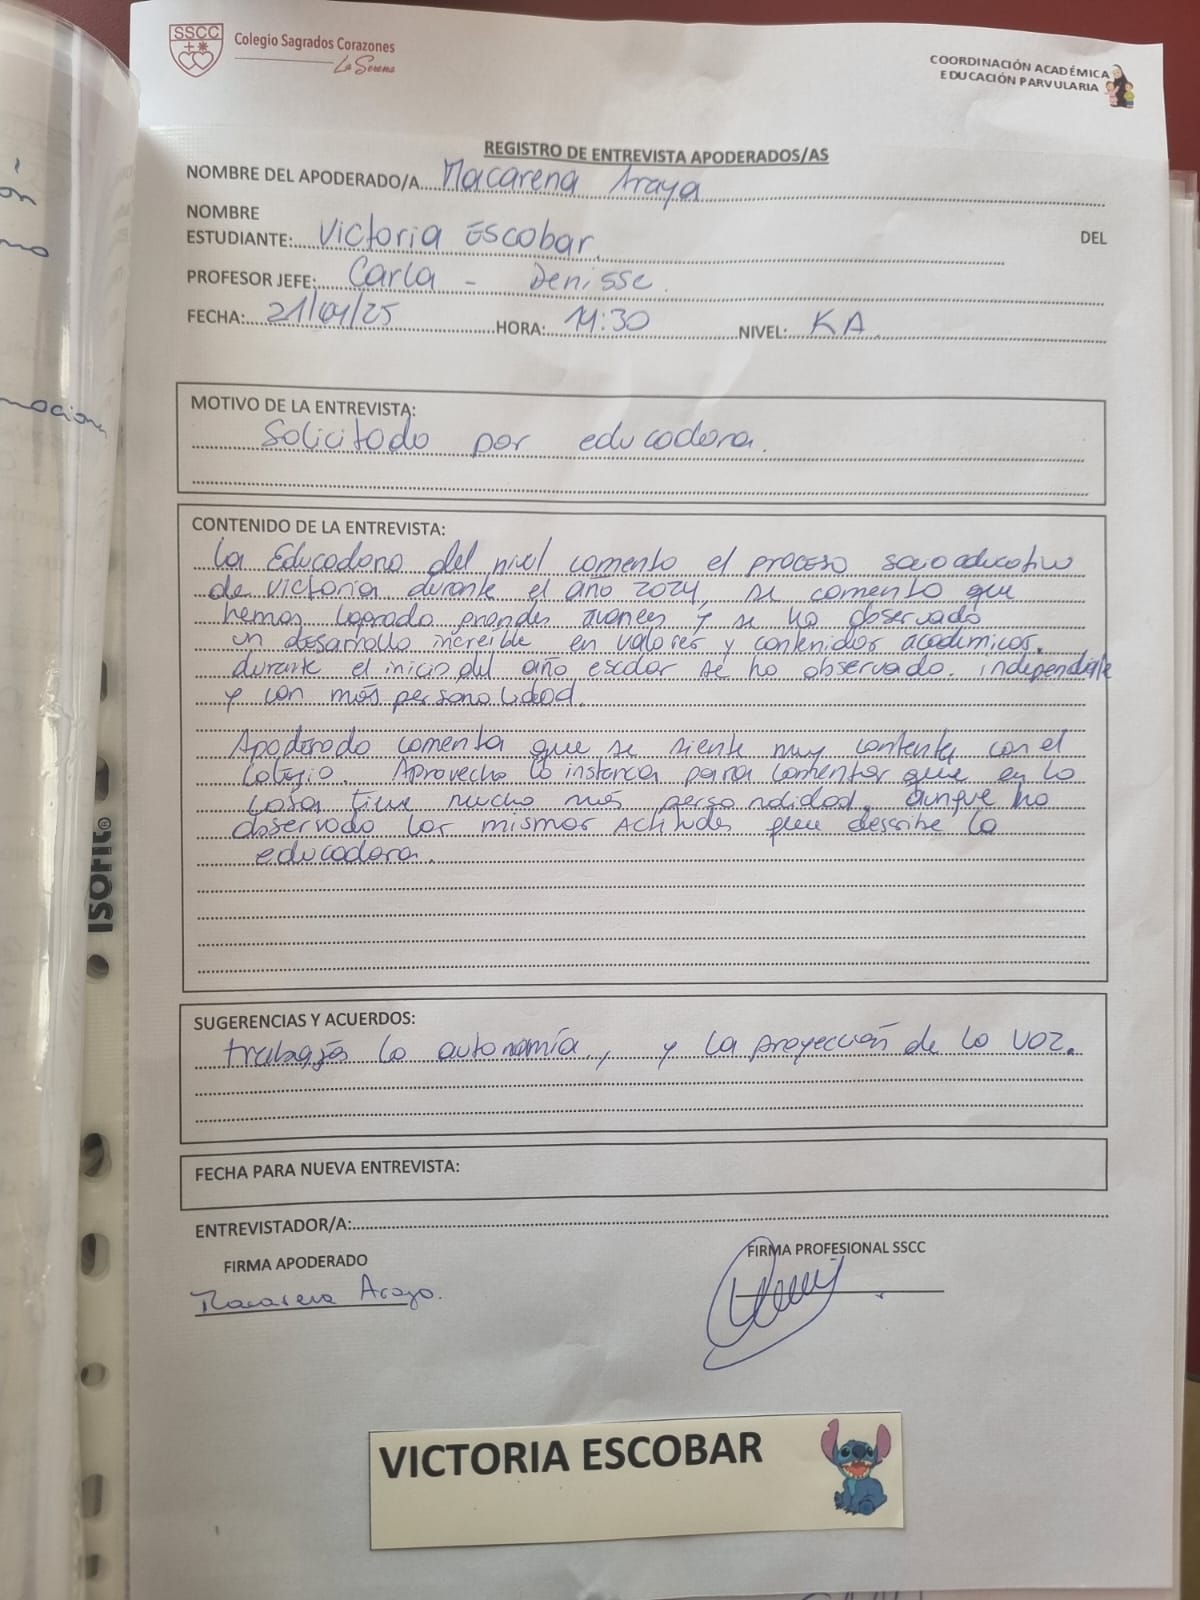 SSCC
Colegio Sagrados Corazones
La Serena
COORDINACIÓN ACADÉMICA
EDUCACIÓN PARVULARIA
REGISTRO DE ENTREVISTA APODERADOS/AS
NOMBRE DEL APODERADO/A Macarena Araya
NOMBRE DEL
ESTUDIANTE: Victoria Escobar.
PROFESOR JEFE: Carla - Denisse.
FECHA: 21/04/25 HORA: 14:30 NIVEL: KA.
MOTIVO DE LA ENTREVISTA:
Solicitado por educadora.
CONTENIDO DE LA ENTREVISTA:
La Educadora del nivel comento el proceso socioeducativo
de victoria durante el año 2024, se comento que
hemos logrado grandes avances y se ha observado
un desarrollo increíble en valores y contenidos académicos.
durante el inicio del año escolar se ha observado. independiente
y con más personalidad.
Apoderado comenta que se siente muy contenta con el
Colegio. Aprovecha la instancia para comentar que en la
casa tiene mucho más personalidad. aunque ha
observado las mismas actitudes que describe la
educadora.
SUGERENCIAS Y ACUERDOS:
la autonomía, y la proyección de la voz.
FECHA PARA NUEVA ENTREVISTA:
ENTREVISTADOR/A:
FIRMA APODERADO
FIRMA PROFESIONAL SSCC
Macarena Araya.
VICTORIA ESCOBAR
isofit